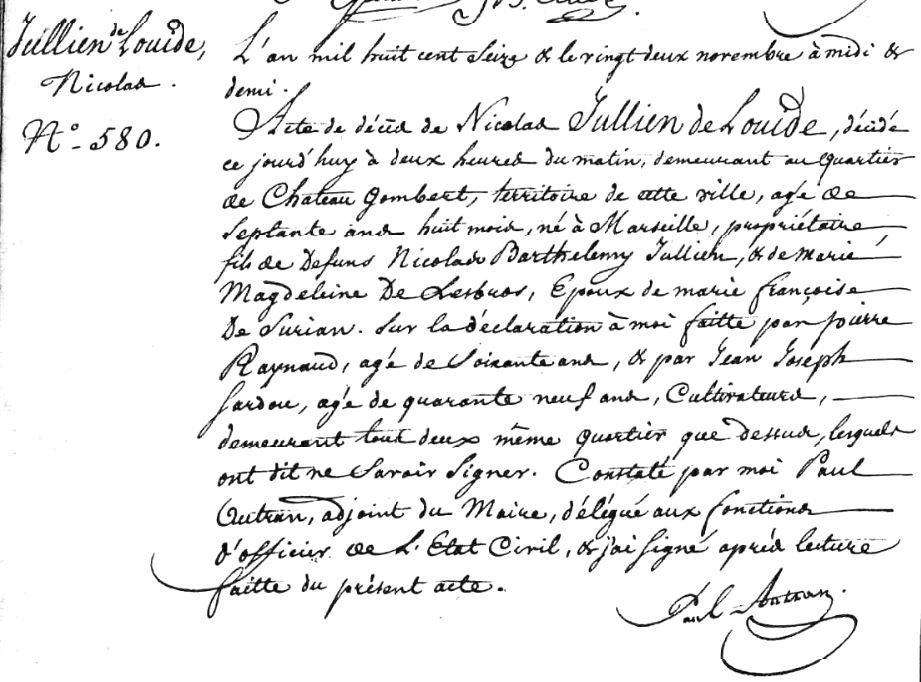 Jullien de Louide,
Nicolas.
N.° 580.
L'an mil huit cent Seize & le vingt deux novembre à midi &
demi.
Acte de décès de Nicolas Jullien de Louide, décédé
ce jourd'huy à deux heures du matin, demeurant au quartier
de Chateau Gombert, territoire de cette ville, agé de
Septante ans huit mois, né à Marseille, propriétaire,
fils de Defuns Nicolas Barthelemy Jullien, & de marie
Magdeleine De Lesbros, Epoux de marie françoise
De Surian. Sur la déclaration à moi faitte par pierre
Raynaud, agé de Soixante ans, & par Jean Joseph
Sardou, agé de quarante neuf ans, Cultivateurs,
demeurant tout deux même quartier que dessus, lesquels
ont dit ne Savoir Signer. Constaté par moi Paul
Autran, adjoint du Maire, délégué aux fonctions
d'officier de L'Etat Civil, & j'ai Signé après lecture
faitte du présent acte.
Paul Autran.